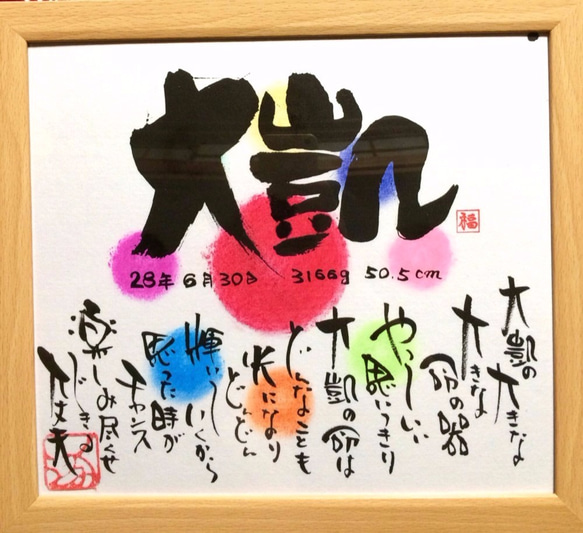 大凱
福
28年6月30日 3166g 50.5cm
大凱の大きな
大きな
命の器
思いっきり
大凱の命は
どんなことも
光になり
どんどん
輝いていくから
思った時が
チャンス
楽しみ尽くせ
できる
大丈夫